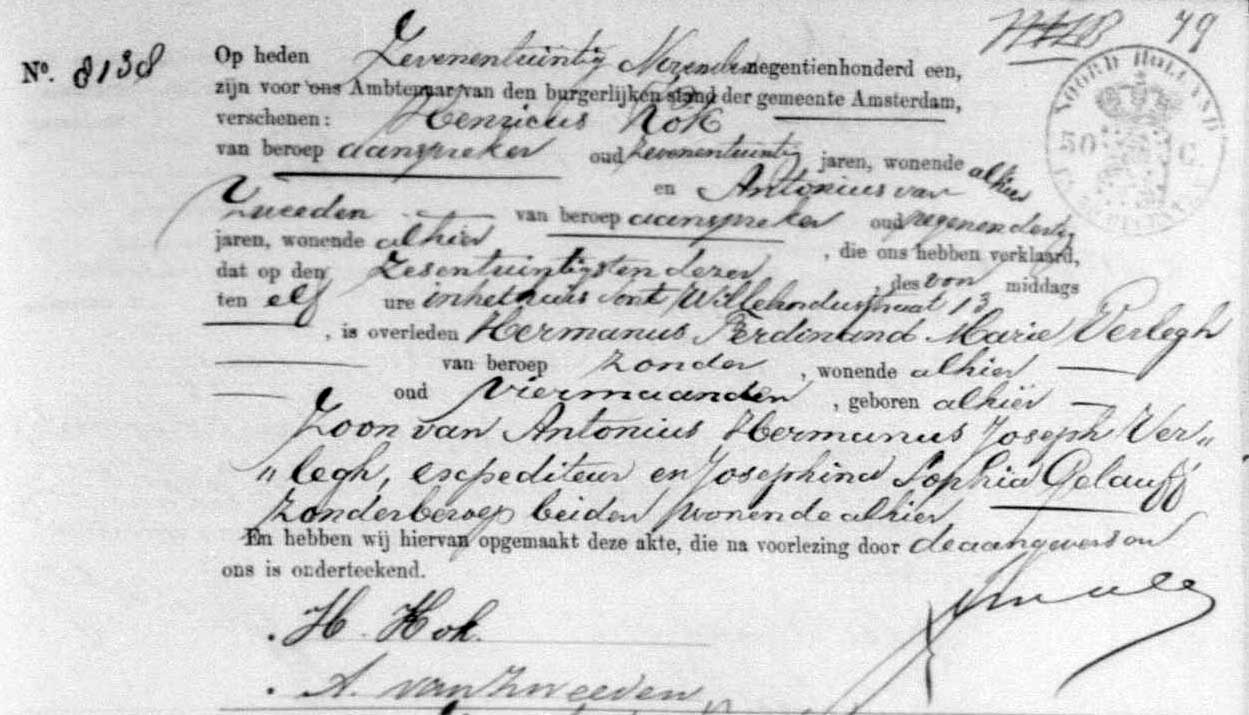 79
Nº. 8138
Op heden Zevenentwintig November negentienhonderd een,
zijn voor ons Ambtenaar van den burgerlijken stand der gemeente Amsterdam,
verschenen: Henricus Kok
van beroep aanspreker oud zevenentwintig jaren, wonende alhier
en Antonius van
Zweeden van beroep aanspreker oud negenendertig
jaren, wonende alhier, die ons hebben verklaard,
dat op den zesentwintigsten dezer, des voor middags
ten elf ure in het huis Sint Willebrordusstraat 13
, is overleden Hermanus Ferdinand Marie Verlegh
van beroep zonder, wonende alhier
oud vier maanden, geboren alhier
Zoon van Antonius Hermanus Joseph Ver„
„legh, expediteur en Josephina Sophia Gelauff
zonder beroep beiden wonende alhier
En hebben wij hiervan opgemaakt deze akte, die na voorlezing door de aangevers en
ons is onderteekend.
H. Kok.
A. van Zweeden
NOORD HOLLAND
50 C.